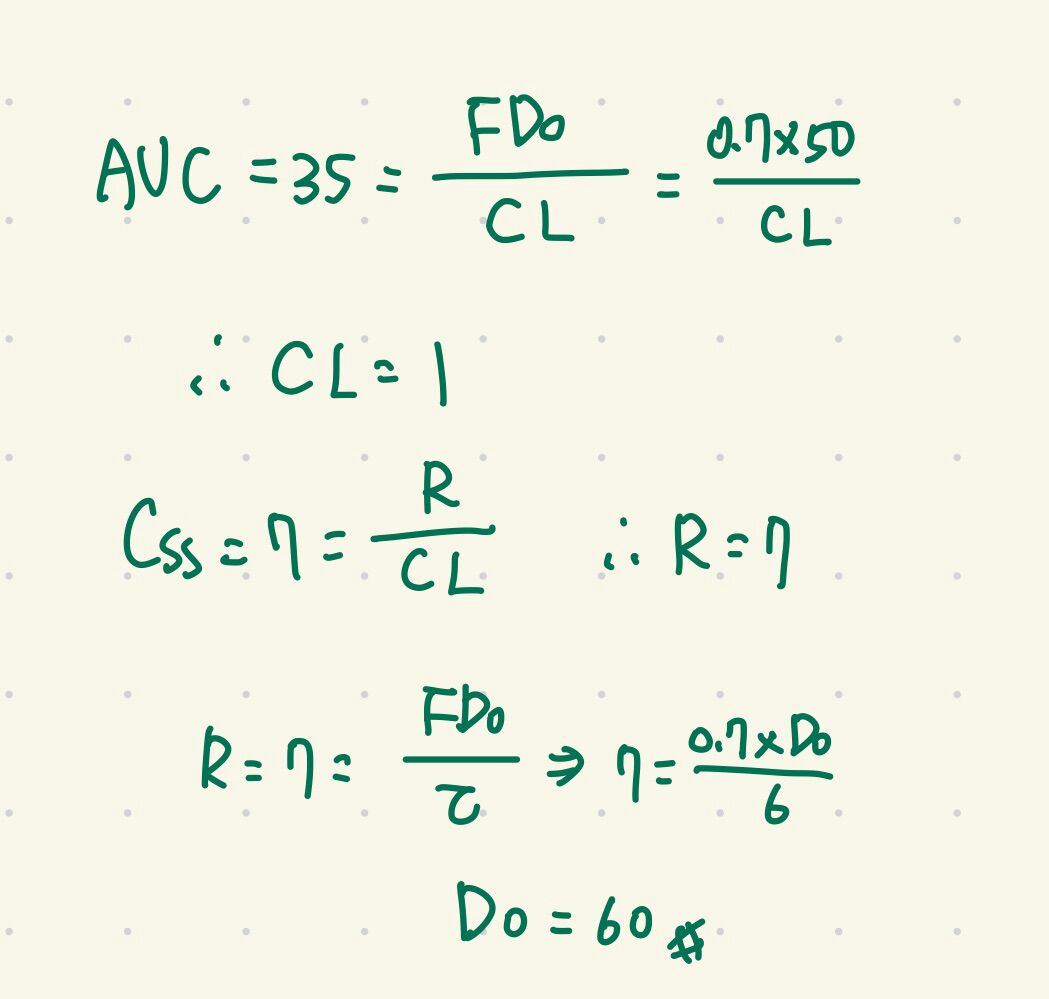 AUC = 35 = FD₀/CL = 0.7×50/CL
∴ CL = 1
Css = 7 = R/CL ∴ R = 7
R = 7 = FD₀/τ ⇒ 7 = 0.7×D₀/6
D₀ = 60 #